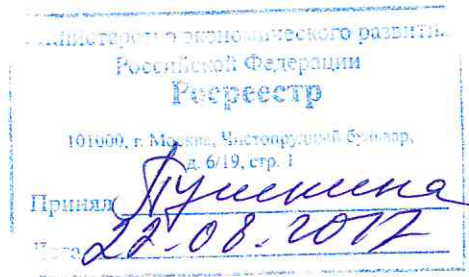 Министерство экономического развития
Российской Федерации
Росреестр
101000, г. Москва, Чистопрудный бульвар,
д. 6/19, стр. 1
Принял Пушкина
Дата 22.08.2017